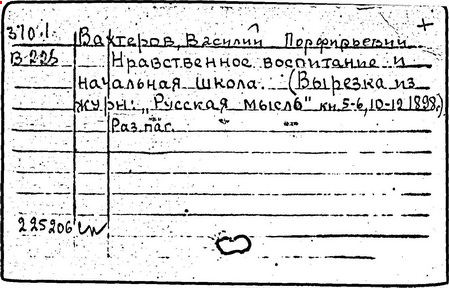 370.1. Вахтеров, Василий Порфирьевич +
В-225 Нравственное воспитание и
начальная школа. (Вырезка из
журн: „Русская мысль" кн. 5-6, 10-12 1898г.)
Раз.паг.
225206